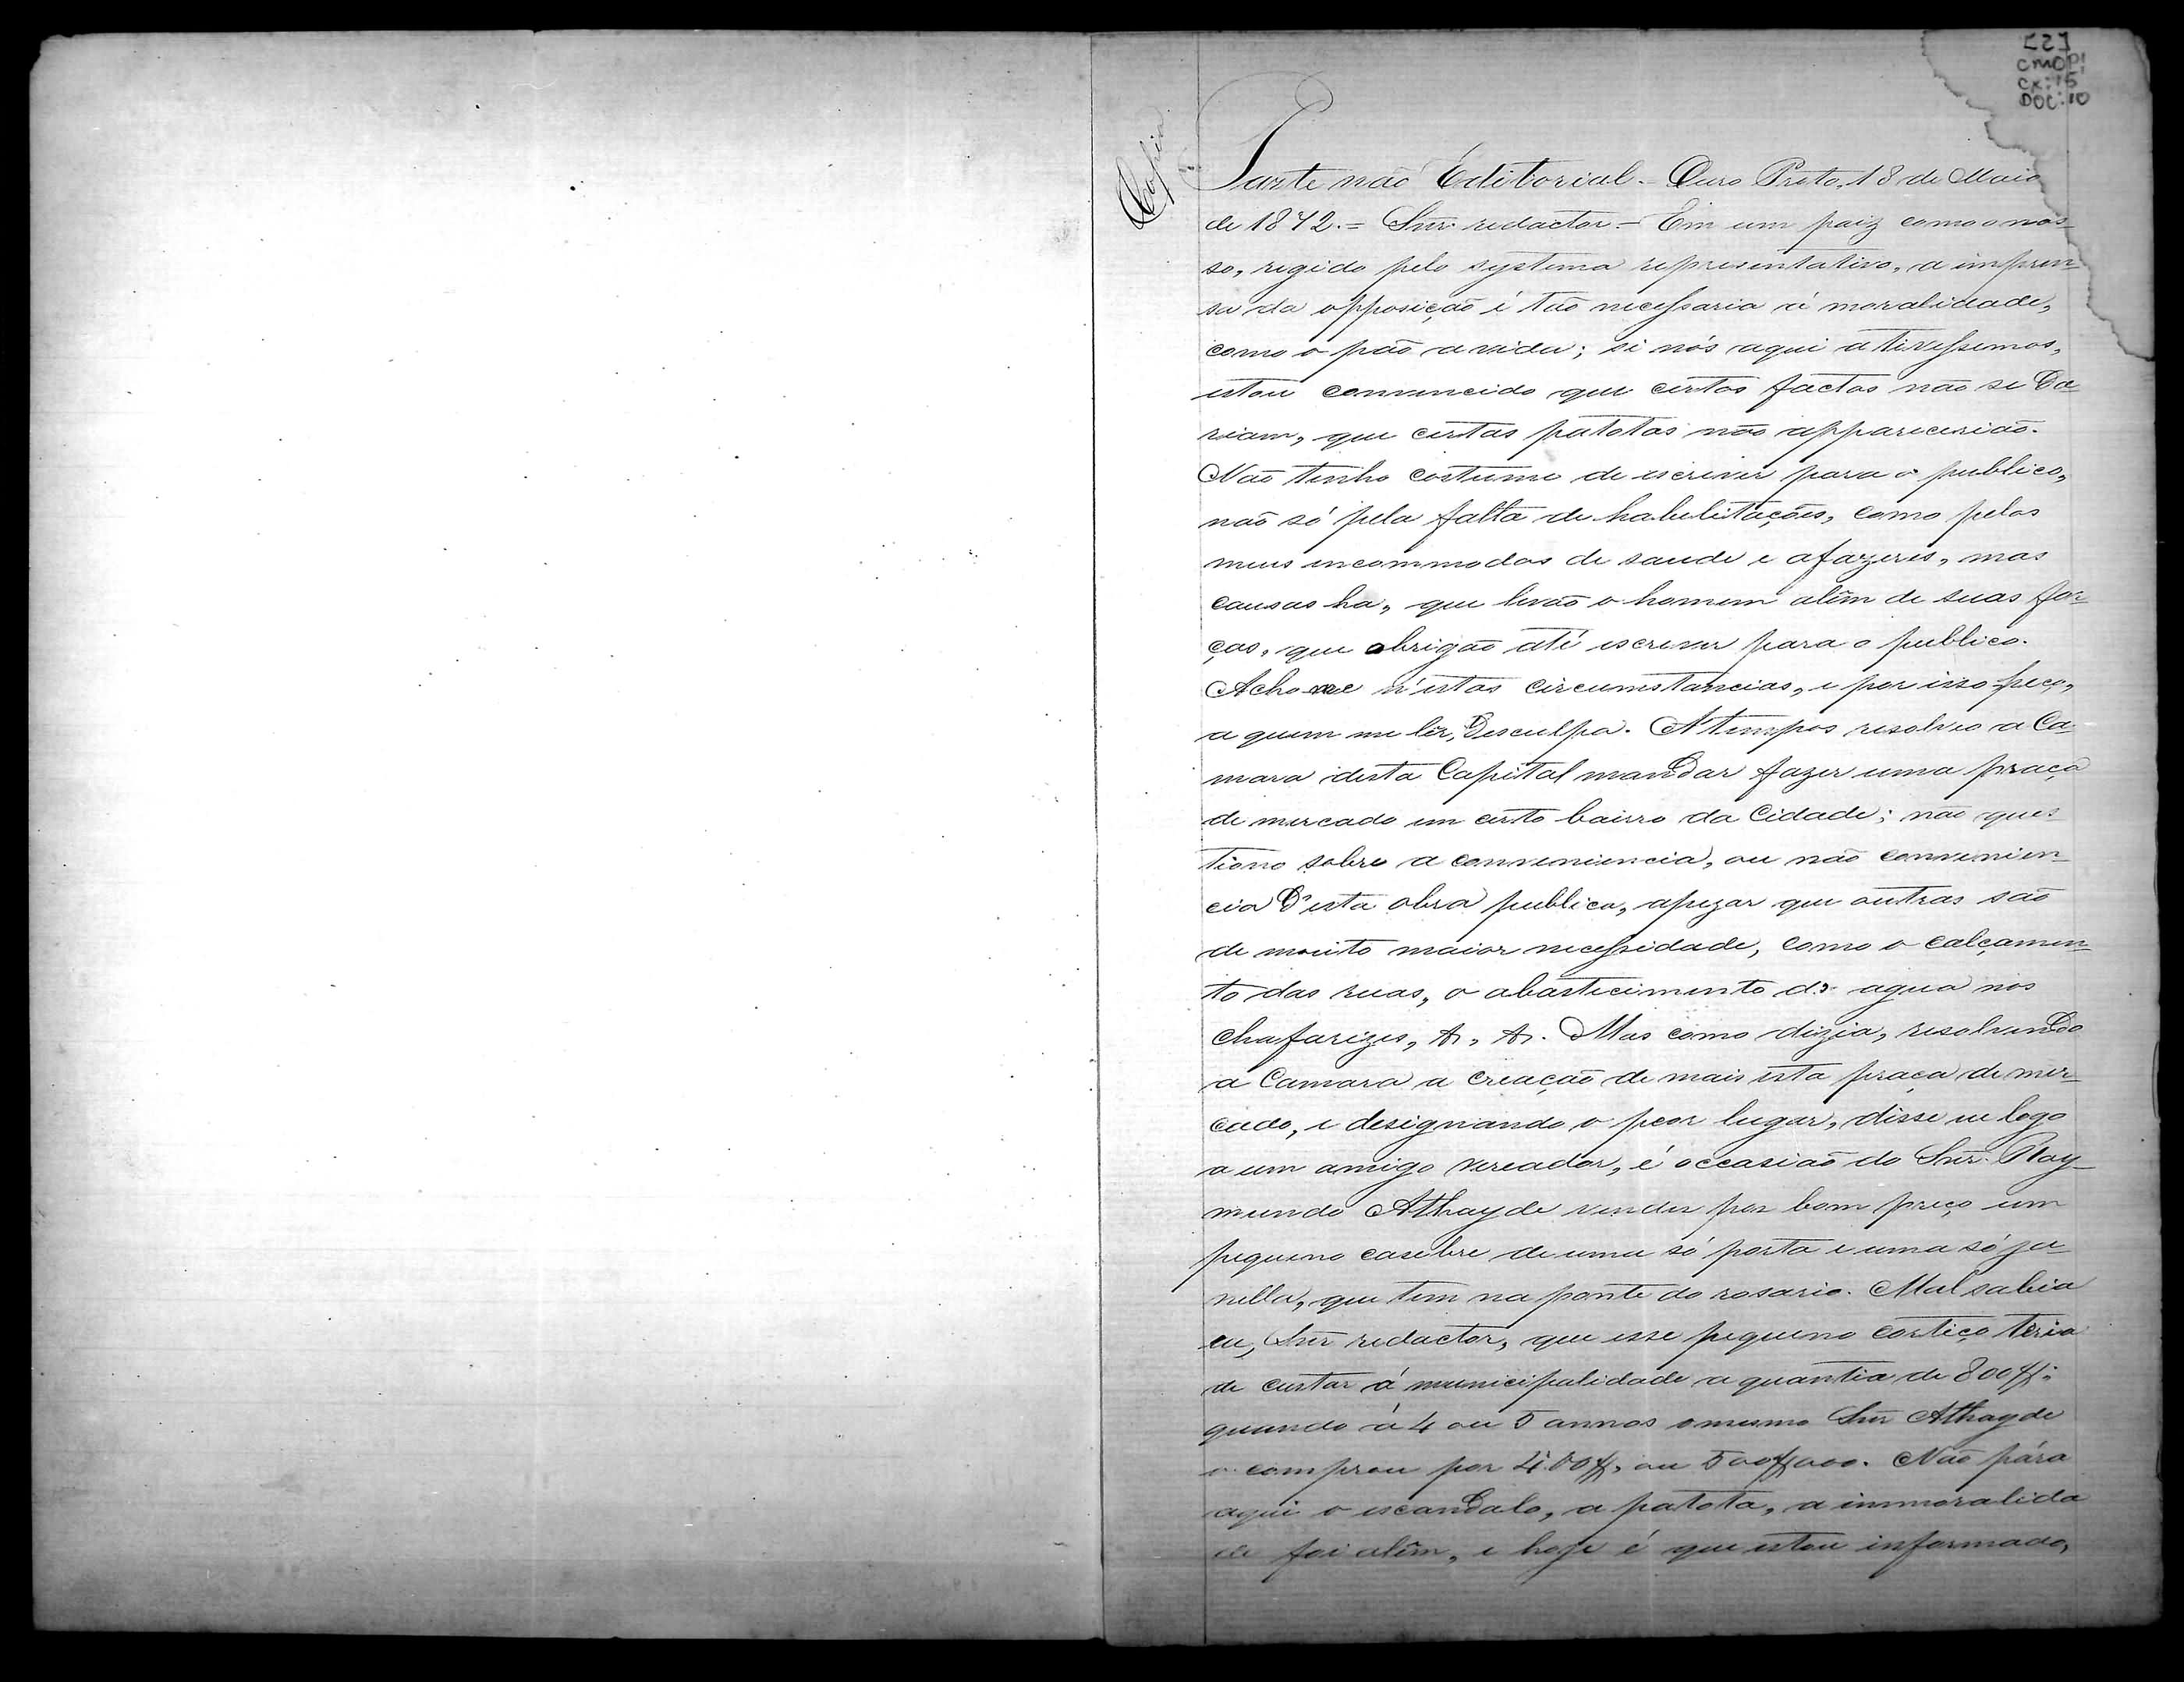 [2]
CMOP!
CX: 15
DOC: 10
Copia
Parte não Editorial. - Ouro Preto, 18 de Maio
de 1872. = Snr. redactor. - Em um paiz como o nos-
so, regido pelo systema representativo, a impren-
sa da opposição é tão necessaria á moralidade,
como o pão a vida; si nós aqui a tivessemos,
estou convencido que certos factos não se da-
riam, que certas patotas não appareceriaõ.
Não tenho costume de escrever para o publico,
não só pela falta de habelitações, como pelos
meus incommodos de saude e afazeres, mas
causas ha, que levão o homem além de suas for-
ças, que obrigão até escrever para o publico.
Acho me n'estas circumstancias, e por isso peço,
a quem me lêr, desculpa. A tempos resolveo a Ca-
mara desta Capital mandar fazer uma praça
de mercado em certo bairro da Cidade; não ques-
tiono sobre a conveniencia, ou não convenien-
cia d'esta obra publica, apezar que outras são
de muito maior necessidade, como o calçamen-
to das ruas, o abastecimento de agua nos
chafarizes, &, &. Mas como dizia, resolvendo
a Camara a creação de mais esta praça de mer-
cado, e designando o peor lugar, disse eu logo
a um amigo vereador, é occasião do Snr. Ray-
mundo Athayde vender por bom preço um
pequeno casebre de uma só porta e uma só ja-
nella, que tem na ponte do rosario. Mal sabia
eu, Snr redactor, que esse pequeno cortiço teria
de custar á municipalidade a quantia de 800$;
quando á 4 ou 5 annos o mesmo Snr Athayde
o comprou por 400$, ou 500$000. Não pára
aqui o escandalo, a patota, a immoralida
de foi além, e hoje é que estou informado,